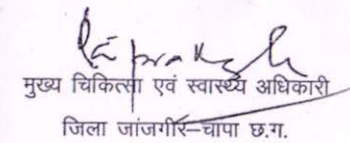 मुख्य चिकित्सा एवं स्वास्थ्य अधिकारी
जिला जांजगीर–चापा छ.ग.